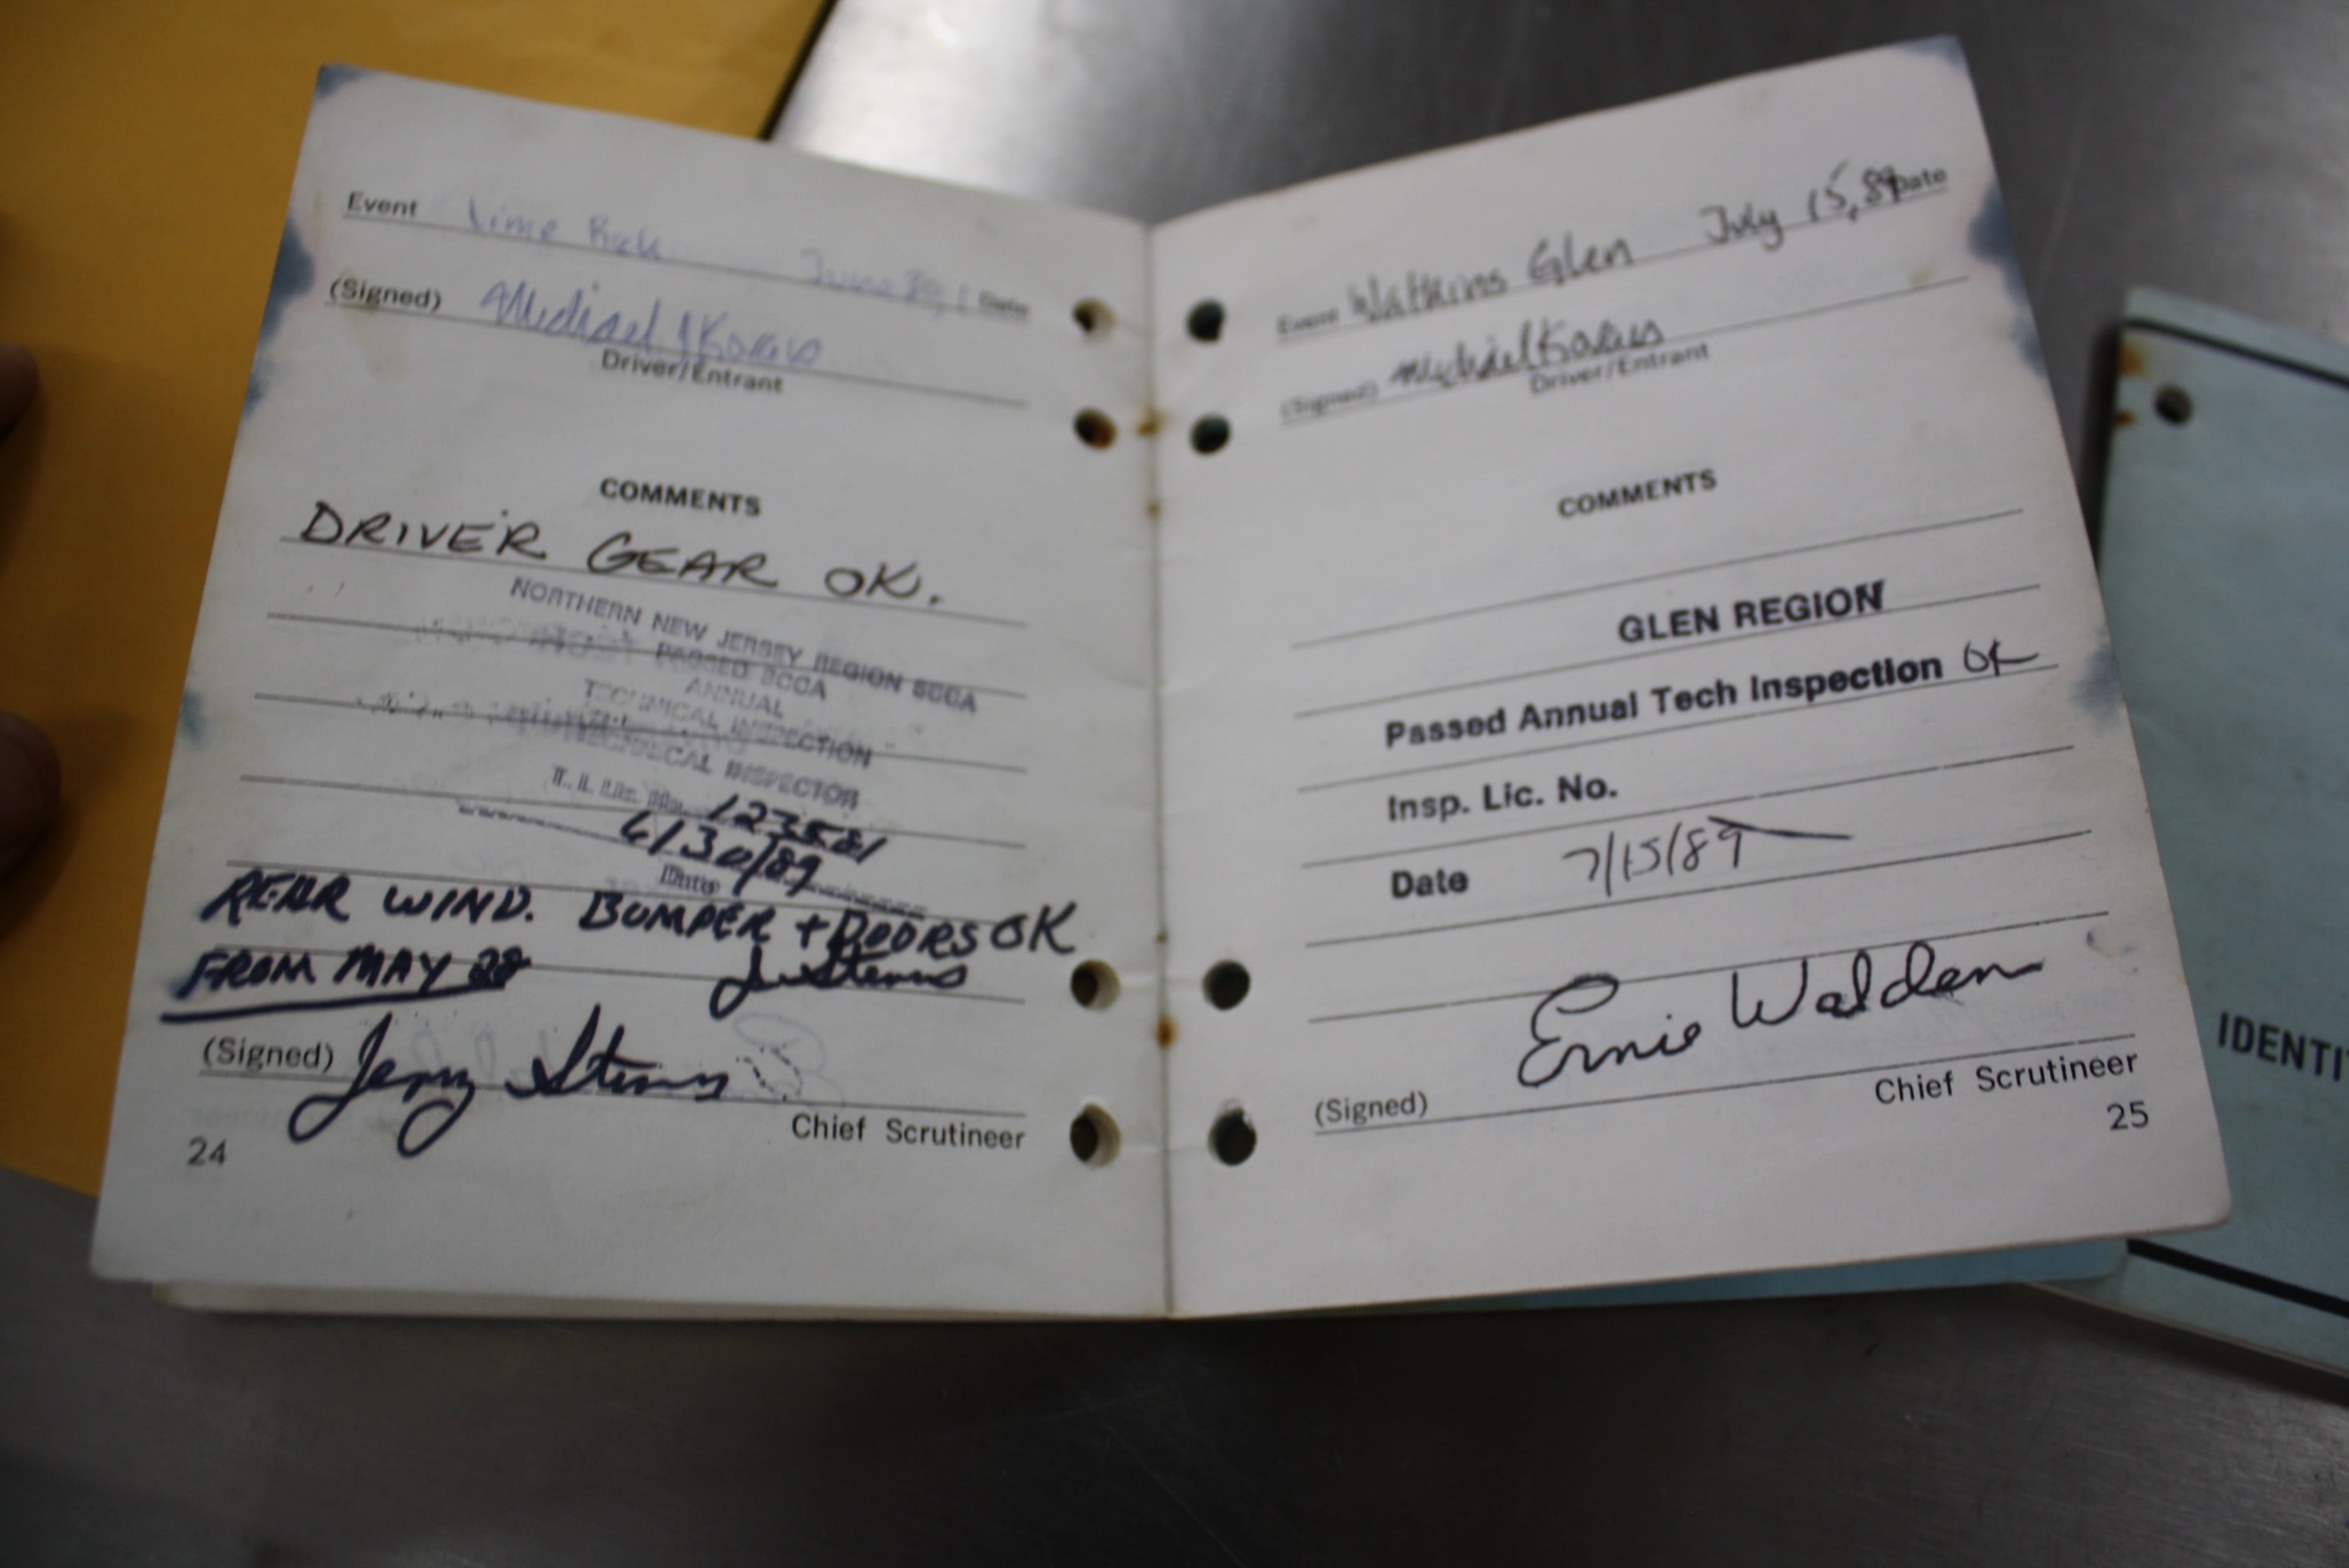 Event Lime Rock June Date
(Signed) Michael
Driver/Entrant
COMMENTS
DRIVER GEAR OK.
NORTHERN NEW JERSEY REGION SCCA
PASSED SCCA
ANNUAL
TECHNICAL INSPECTION
INSPECTOR
T. I. Lic. No. 123581
6/30/89
Date
REAR WIND. BUMPER + DOORS OK
FROM MAY 28
(Signed) Jerry
Chief Scrutineer
24
Event Watkins Glen July 15, 89 Date
(Signed) Michael
Driver/Entrant
COMMENTS
GLEN REGION
Passed Annual Tech Inspection OK
Insp. Lic. No.
Date 7/15/89
Ernie Walden
(Signed)
Chief Scrutineer
25
IDENTI